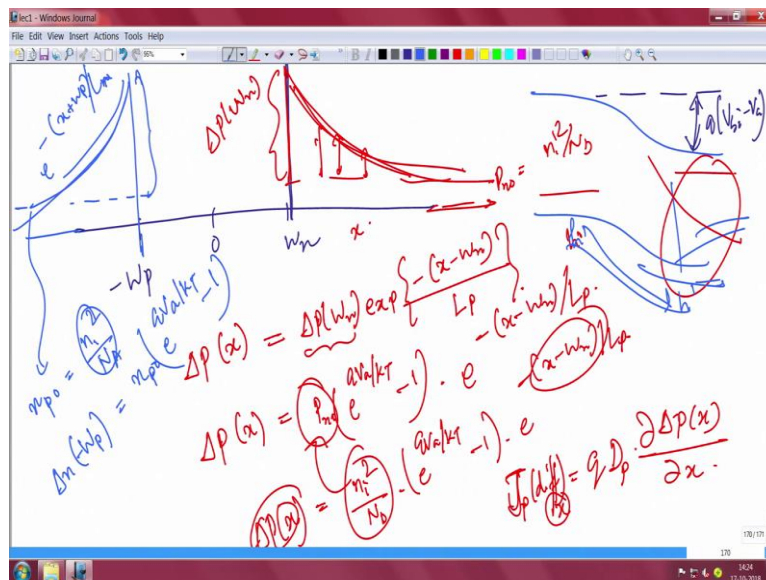 lec1 - Windows Journal
File Edit View Insert Actions Tools Help
95%
B I
e^{-(x+Wp)/Ln}
A
Δp(Wn)
Pno = ni²/ND
q(Vbi-Va)
-Wp
0
Wn
x
npo = ni²/NA
Δn(-Wp) = npo(e^{qVa/kT} -1)
Δp(x) = Δp(Wn) exp{-(x-Wn)/Lp}
Δp(x) = Pno(e^{qVa/kT} -1) · e^{-(x-Wn)/Lp}
Δp(x) = ni²/ND · (e^{qVa/kT} -1) · e^{-(x-Wn)/Lp}
= qDp · ∂Δp(x)/∂x
170/171
170
14:24
17-10-2018